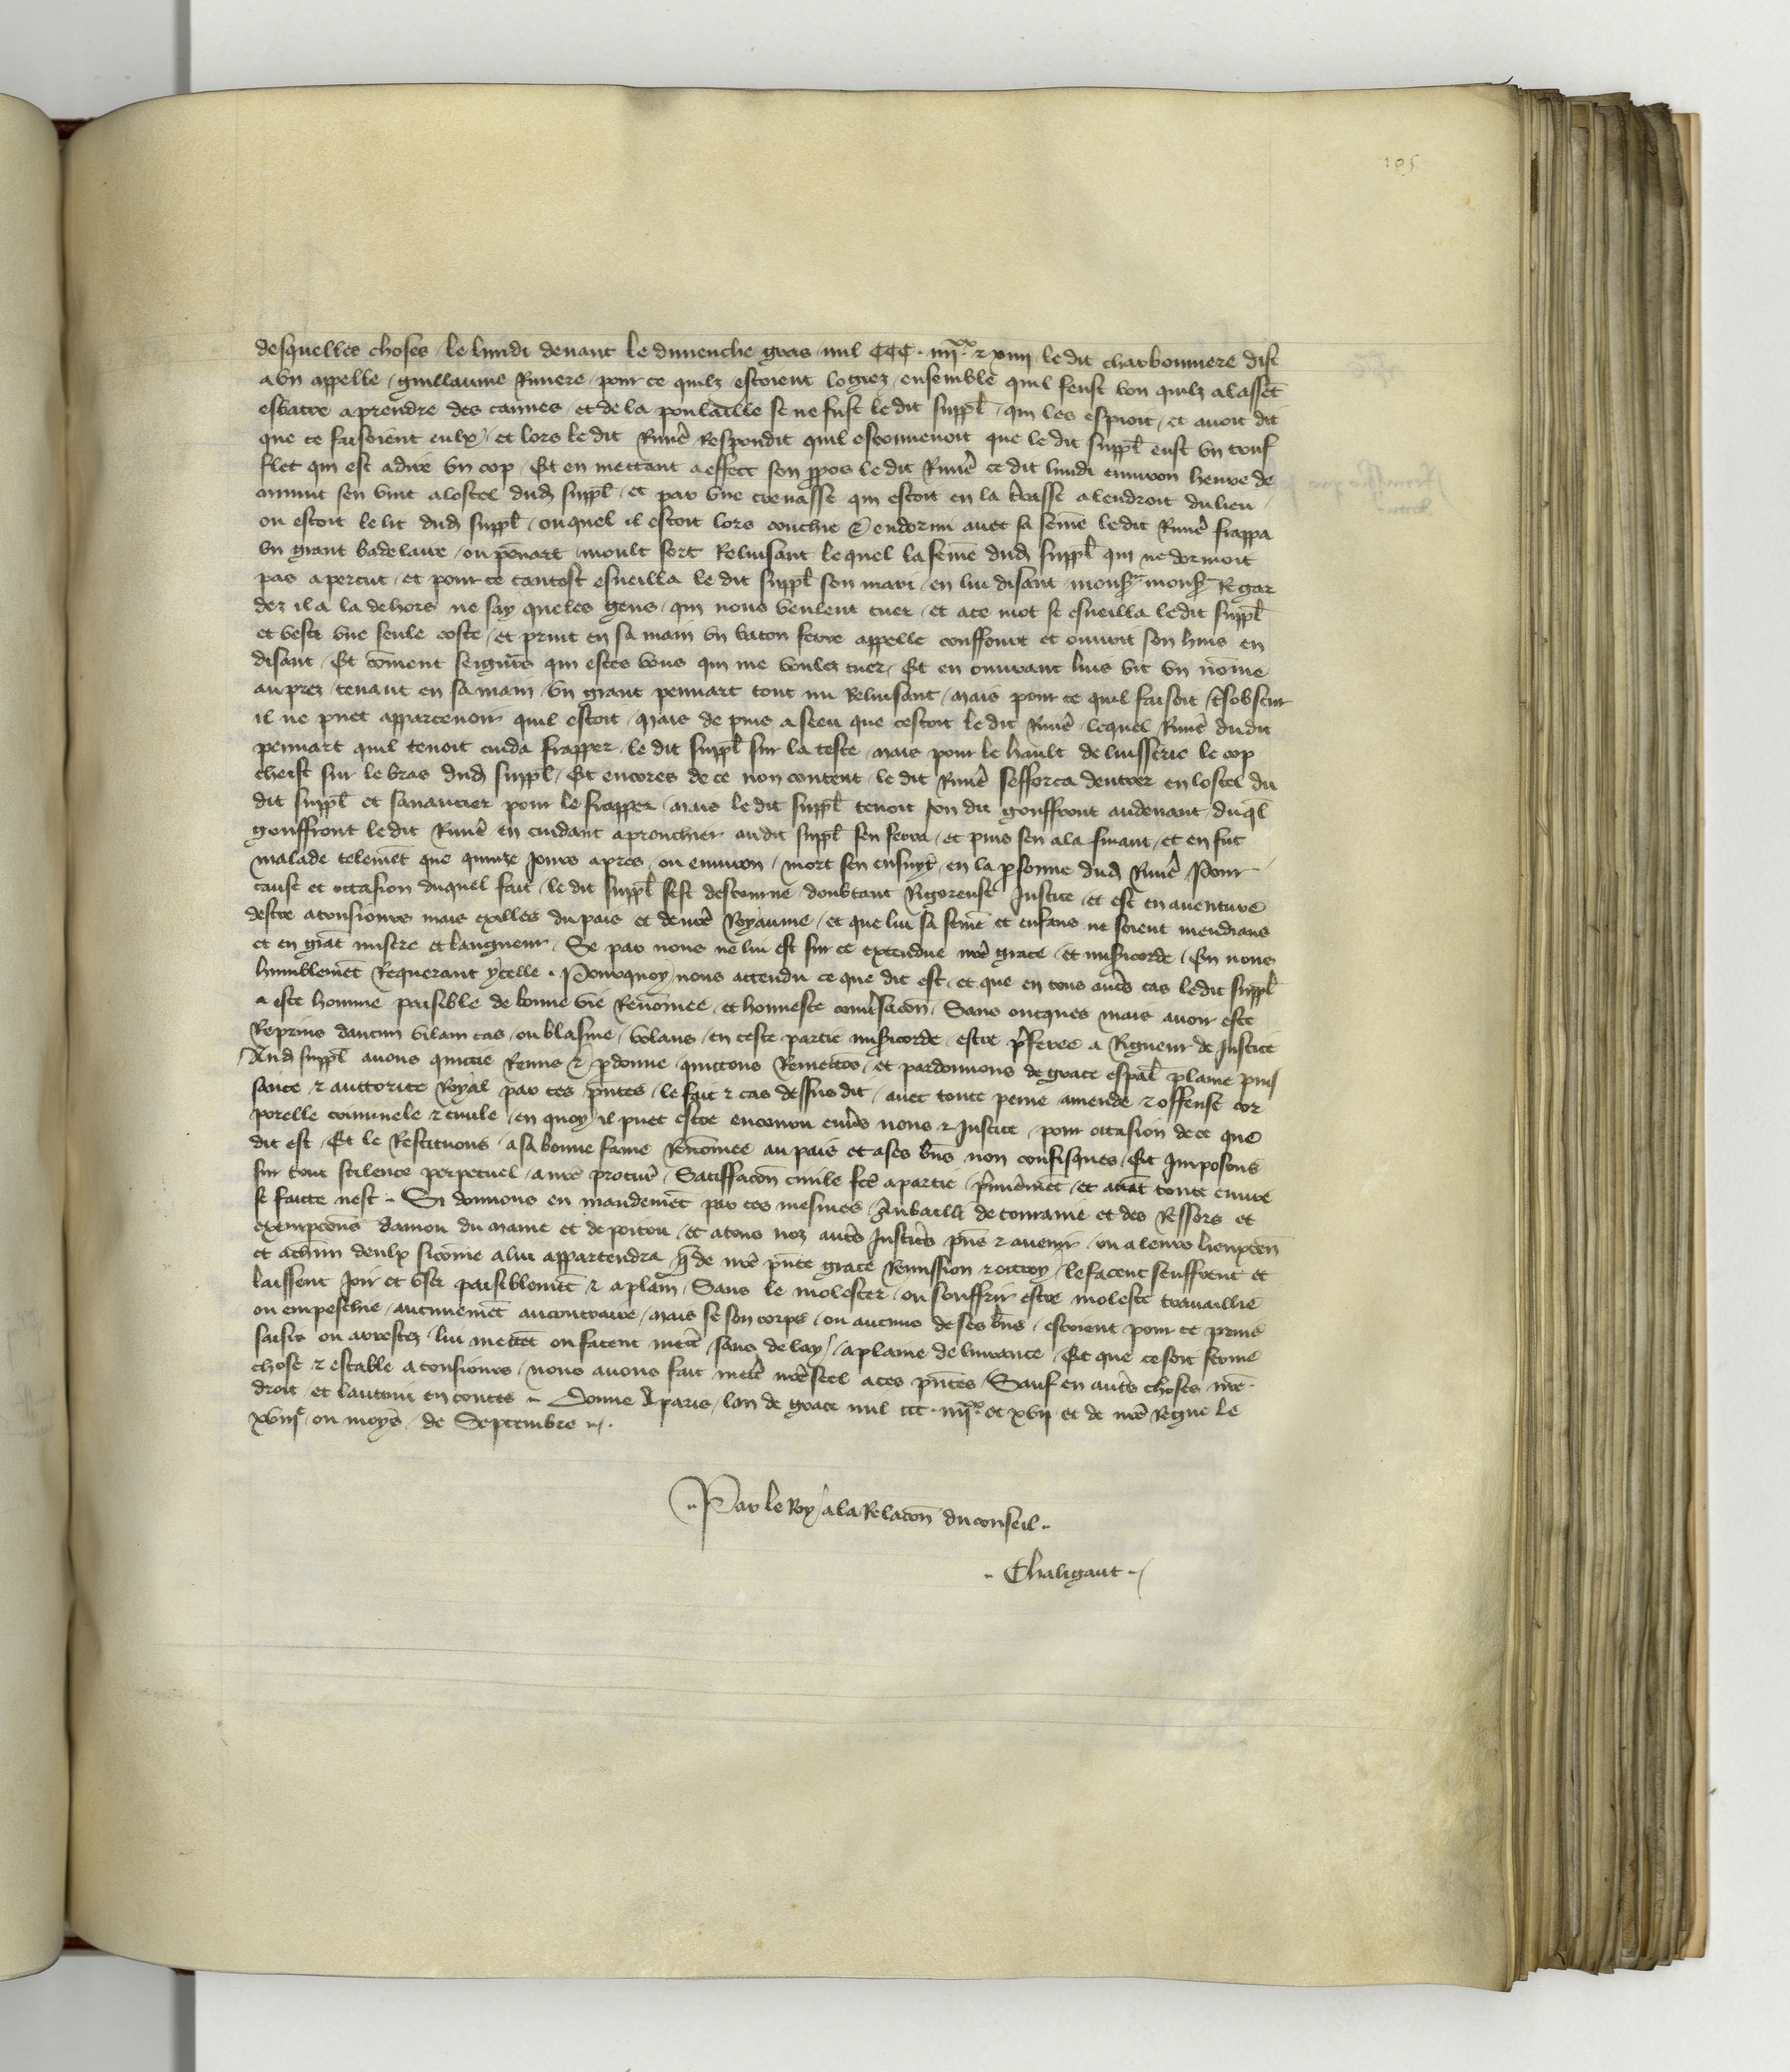 105
desquelles choses le lundi deuant le dimenche gras mil CCC. iiiixx. & xiiii le dit charbonniere dist
a vn appelle guillaume Riuiere pour ce quilz estoient logiez ensemble quil feust bon quilz alassent
esbatre a prendre des cannes et de la poulaille se ne fust le dit suppl qui les espioit et auoit dit
que ce faisoient eulx et lors le dit Riuie Respondit quil esconuenoit que le dit suppl eust vn trouf
flet qui est adire vn cop Et en mettant a effect son ppos le dit Riuie ce dit lundi enuiron heure de
minuit sen vint a lostel dud suppl et par vne creuasse qui estoit en la trasse a lendroit du lieu
ou estoit le lit dud suppl ouquel il estoit lors couchie & endormi auec sa feme le dit Riuie frappa
vn grant badelaire ou penart moult fort Reluisant lequel la feme dud suppl qui ne dormoit
pas apercut et pour ce tantost esueilla le dit suppl son mari en lui disant monsr monsr Regar
dez il a la dehors ne say queles gens qui nous veulent tuer et a ce mot se esueilla le dit suppl
et vesti vne seule coste et print en sa main vn baton ferre appelle gouffourt et ouurit son huis en
disant Et coment seigneurs qui estes vous qui me voulez tuer Et en ouurant luis vit vn home
au prez tenant en sa main vn grant pennart tout nu Reluisant mais pour ce quil faisoit tsobscur
il ne puet apparceuoir qui il estoit mais de puis a sceu que cestoit le dit Riuie lequel Riuie dudit
pennart quil tenoit cuida frapper le dit suppl sur la teste mais pour le hault de luisserie le cop
cheist sur le bras dud suppl Et encores de ce non content le dit Riuie sefforca dentrer en lostel du
dit suppl et sauancier pour le frapper mais le dit suppl tenoit son dit gouffourt audeuant duql
gouffourt le dit Riuie en cuidant aprouchier audit suppl sen ferra et puis sen ala fuiant et en fut
malade telemet que quinze jours apres ou enuiron mort sen ensuyt en la psonne dud Riuie Pour
cause et occasion duquel fait le dit suppl sest destourne doubtant Rigoreuse Justice et est en auenture
destre a tousiours mais exilles du pais et de nre Royaume et que lui sa feme et enfans ne soient mendians
et en grat misere et langueur Se par nous ne lui est sur ce extendue nre grace et misicorde En nous
humblemet Requerant ycelle Pourquoy nous attendu ce que dit est et que en tous autres cas le dit suppl
a este homme paisible de bonne vie Renomee et honneste conuersacon Sans oncques mais auoir este
Reprins daucun vilain cas ou blasme voulans en ceste partie misicorde estre preferee a Rigueur de Justice
Aud suppl auons quicte Remis & pdonne quictons Remectons et pardonnons de grace espal plaine puis
sance & auctorite Royal par ces pntes le fait & cas dessus dit auec toute peine amende & offense cor
porelle criminele & ciuile en quoy il puet estre encouru enuers nous & Justice pour occasion de ce que
dit est Et le Restituons a sa bonne fame Renomee au pais et a ses bns non confisques Et Imposons
sur tout scilence perpetuel a nre procur Satisfacon ciuile fce a partie premieremet et auat toute euure
se faicte nest Si donnons en mandemet par ces mesmes Au bailli de touraine et des Ressors et
exempcons daniou du maine et de poitou et a tous noz autres Justiciers pns & auenir ou a leurs lieuxten
et a chun deulx sicome a lui appartendra q de nre pnte grace Remission & octroy le facent seuffrent et
laissent Joir et vser paisiblemet & a plain Sans le molester ou souffrir estre moleste trauaillie
ou empeschie aucunemet aucontraire mais se son corps ou aucuns de ses bns estoient pour ce prins
saisis ou arrestez lui mectet ou facent mectre sans delay a plaine deliurance Et que ce soit ferme
chose & estable a tousiours nous auons fait mectre nre seel a ces pntes Sauf en autres choses nre
droit et lautrui en toutes Donne A paris lan de grace mil ccc. iiiixx. et xvii et de nre Regne le
xviie ou moys de Septembre
Par le Roy a la Relacon du conseil
Chaligaut